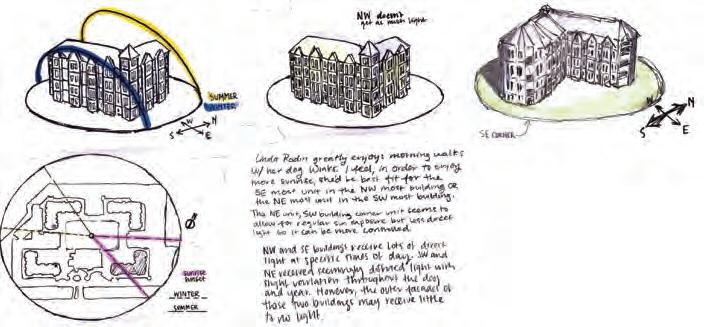 SUMMER
WINTER
N
W
S
E
NW doesn't
get as much light
SE CORNER
N
W
S
E
sunrise
sunset
WINTER
SUMMER
Linda Rodin greatly enjoys morning walks
w/ her dog Winks. I feel, in order to enjoy
more sunrise, she'd be best fit for the
SE most unit in the NW most building OR
the NE most unit in the SW most building.
The NE unit, SW building corner unit seems to
allow for regular sun exposure but less direct
light so it can be more controlled.
NW and SE buildings receive lots of direct
light at specific times of day. SW and
NE received seemingly diffused light with
slight variation throughout the day
and year. However, the outer facades of
those two buildings may receive little
to no light.